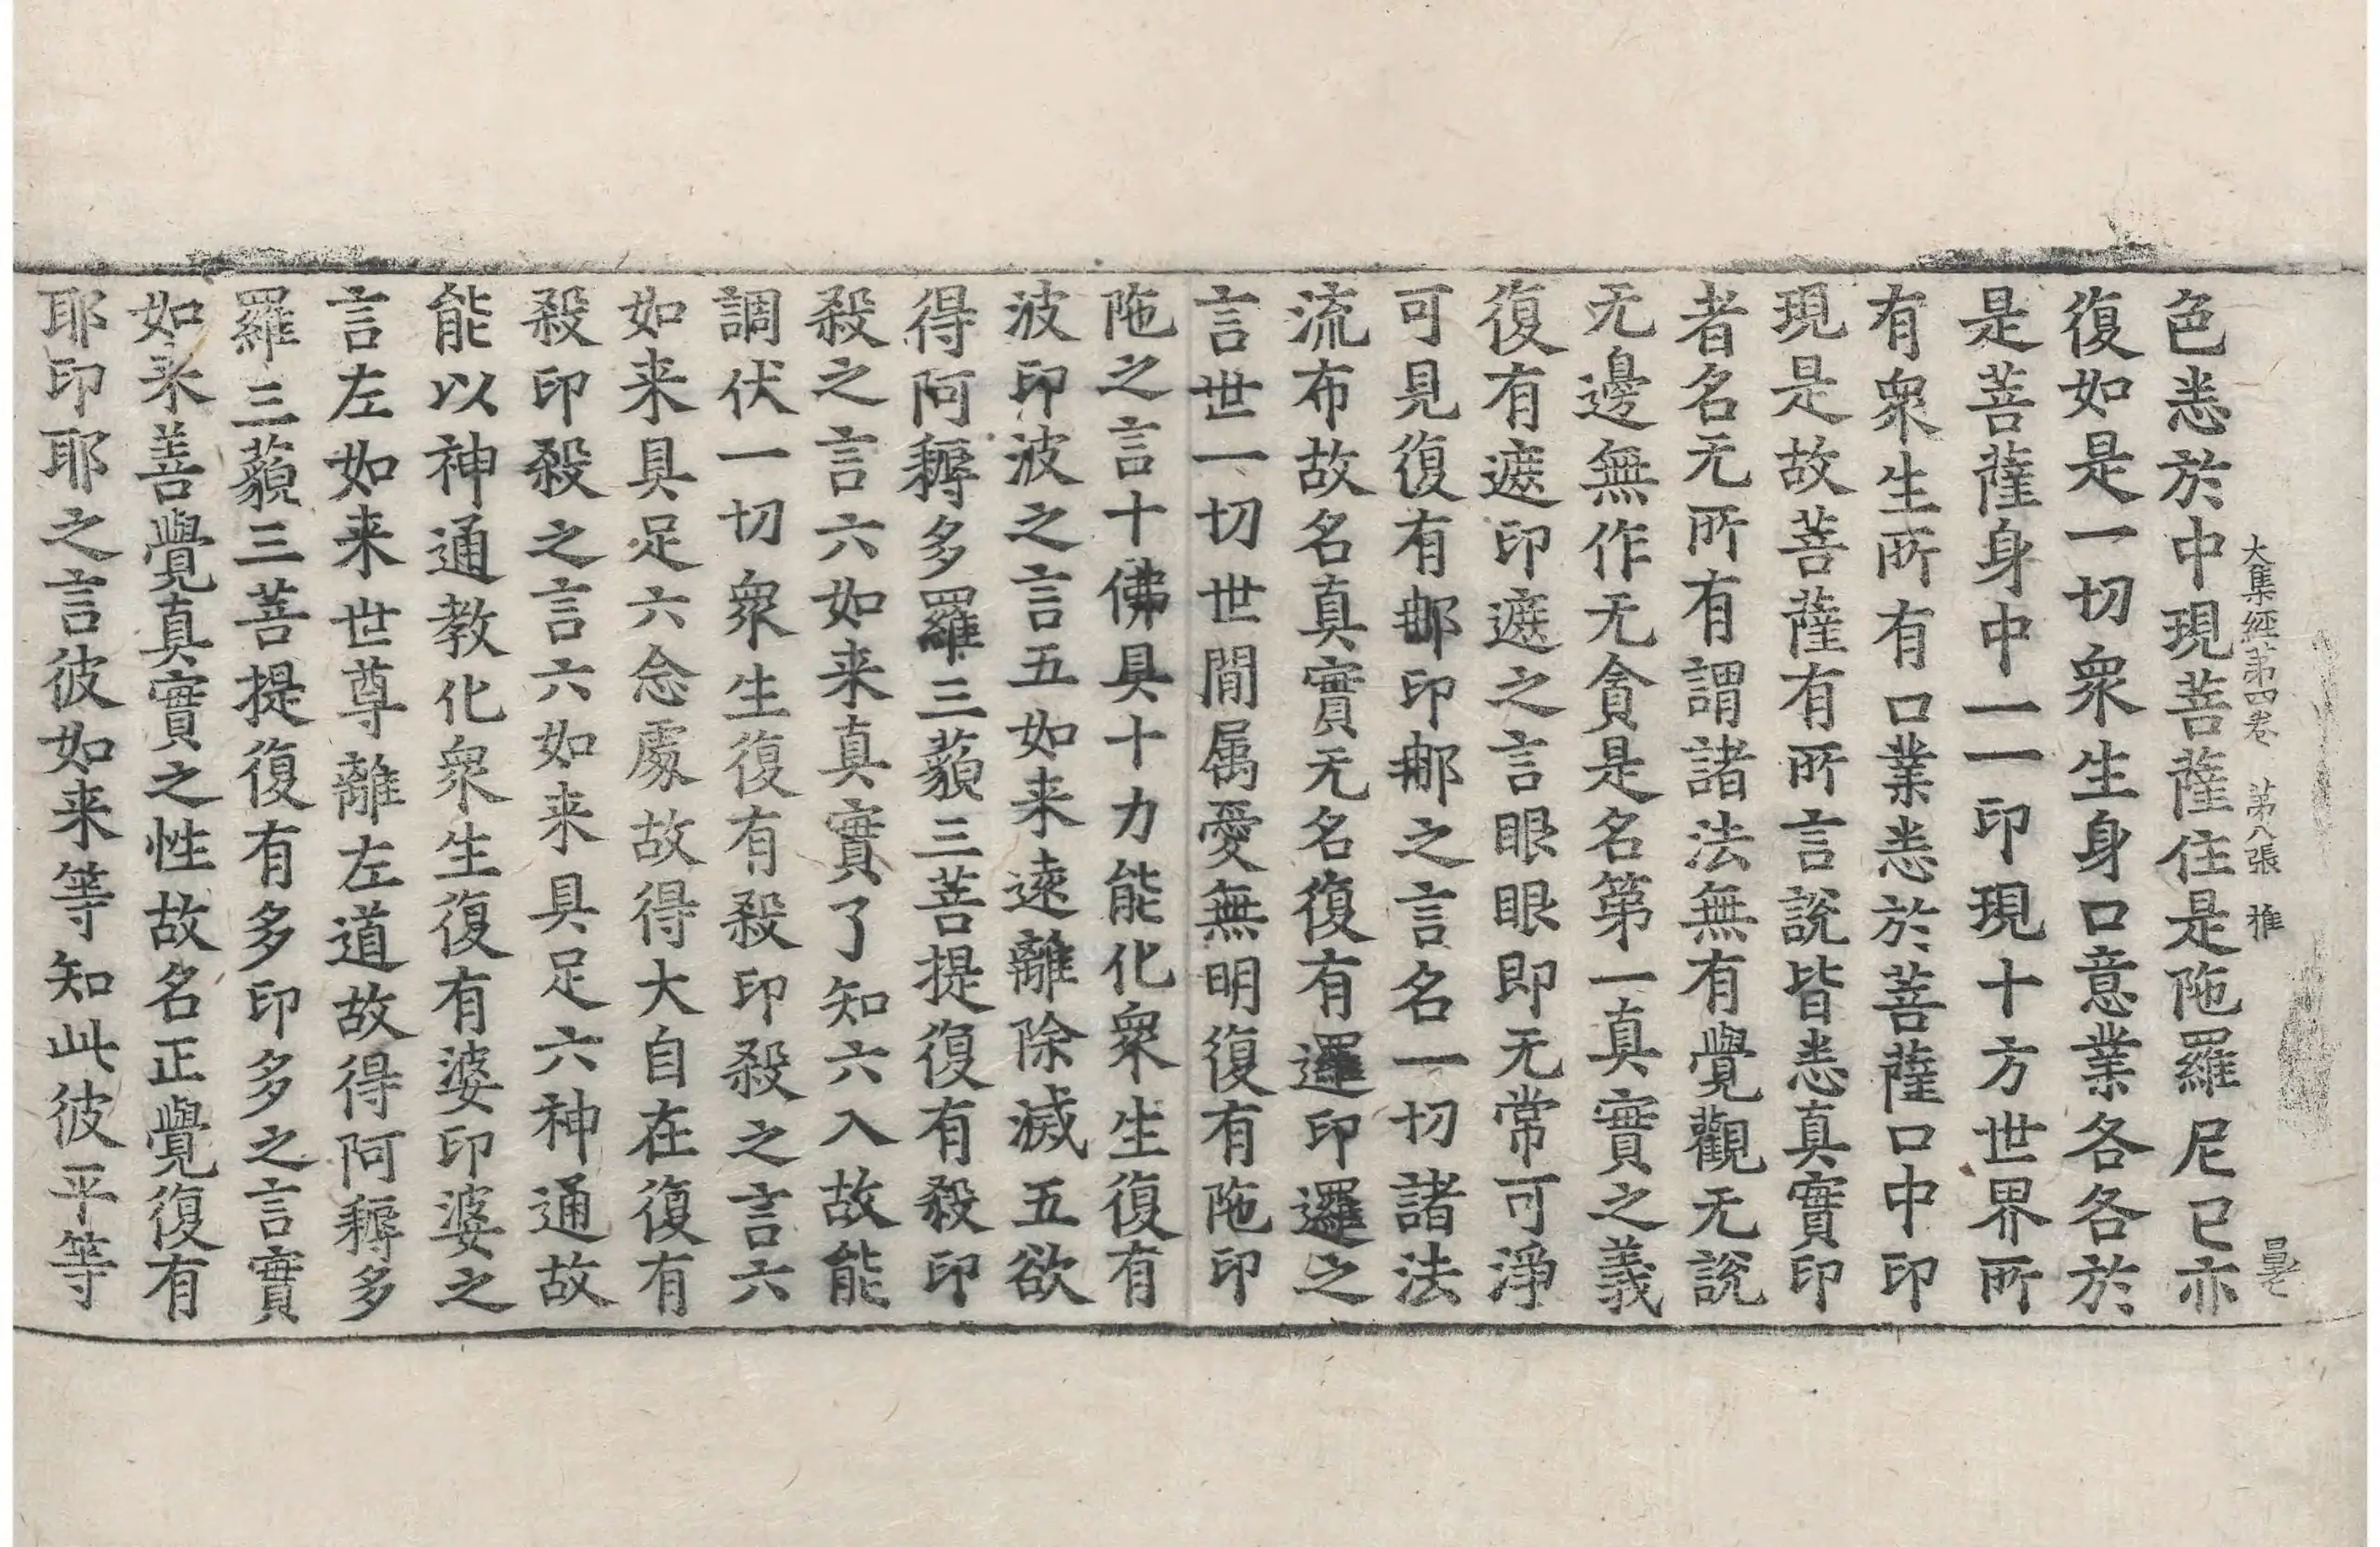 大集經第四卷 第八張 推
色恙於中現菩薩住是陁羅尼已亦
復如是一切衆生身口意業各各於
是菩薩身中一一印現十方世界所
有衆生所有口業恙於菩薩口中印
現是故菩薩有所言說皆恙真實印
者名无所有謂諸法無有覺觀无說
无邊無作无貪是名第一真實之義
復有遮印遮之言眼眼即无常可淨
可見復有𨚗印𨚗之言名一切諸法
流布故名真實无名復有邏印邏之
言世一切世間属愛無明復有陁印
陁之言十佛具十力能化衆生復有
波印波之言五如来遠離除滅五欲
得阿耨多羅三藐三菩提復有殺印
殺之言六如来真實了知六入故能
調伏一切衆生復有殺印殺之言六
如来具足六念處故得大自在復有
殺印殺之言六如来具足六神通故
能以神通教化衆生復有婆印婆之
言左如来世尊離左道故得阿耨多
羅三藐三菩提復有多印多之言實
如来善覺真實之性故名正覺復有
耶印耶之言彼如来等知此彼平等